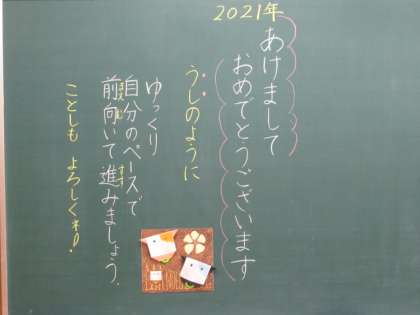 2021年
あけまして
おめでとうございます
うしのように
ゆっくり
自分のペースで
前向いて進みましょう.
ことしも よろしくネ!